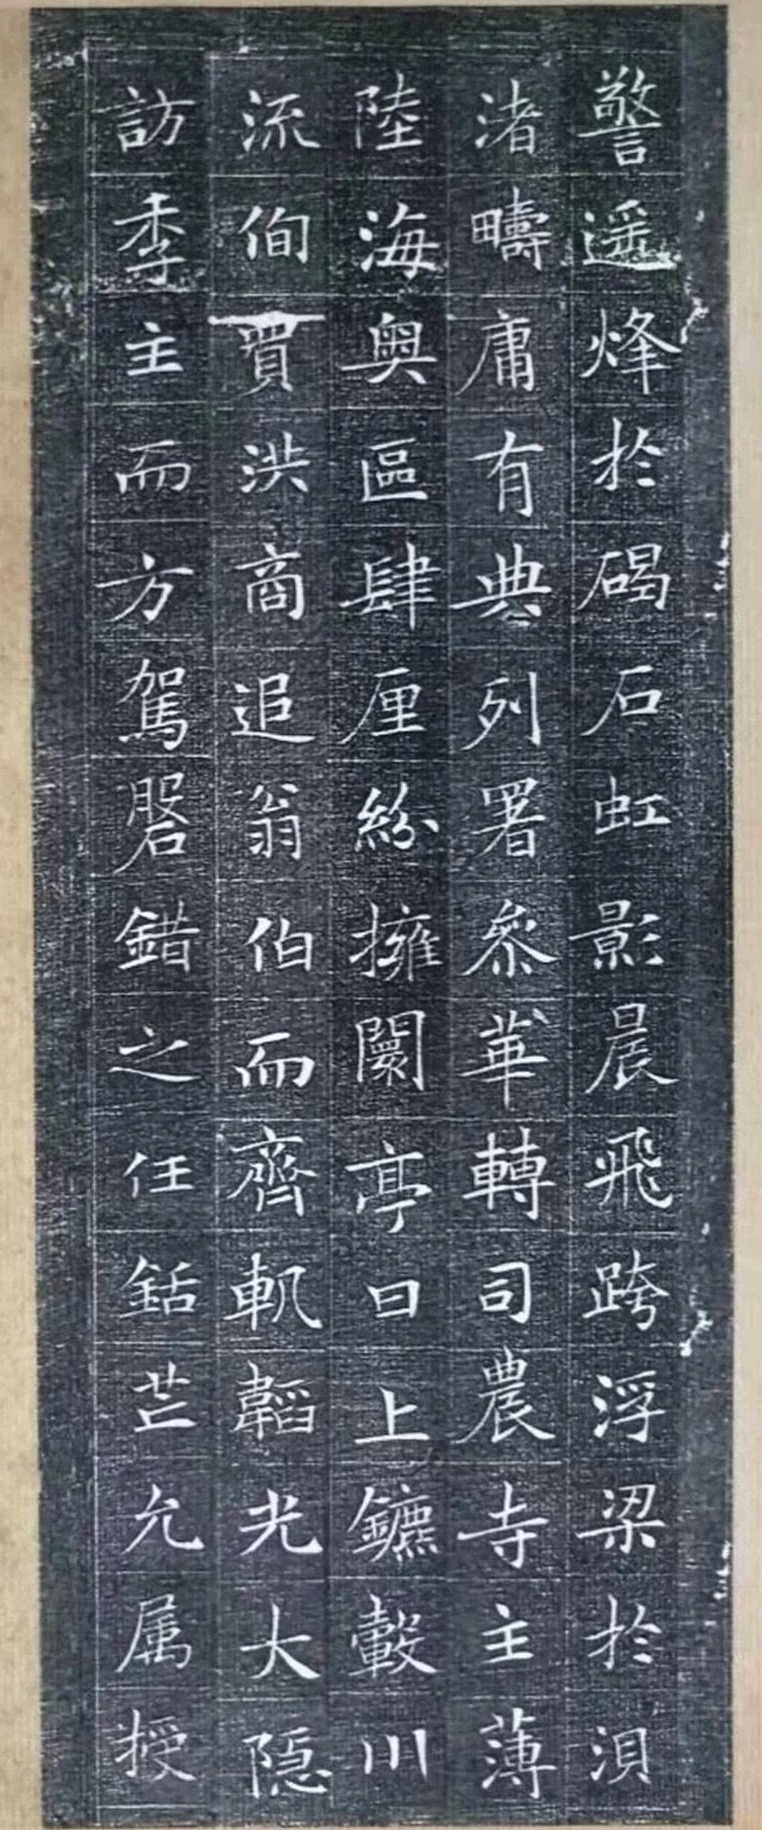 警遥烽於碣石虹影晨飛跨浮梁於浿
渚疇庸有典列署叅華轉司農寺主薄
陸海奥區肆厘紛擁闤亭日上鑣轂川
流佝貿洪商追翁伯而齊軌韜光大隠
訪季主而方駕磐錯之任銛芒允属授